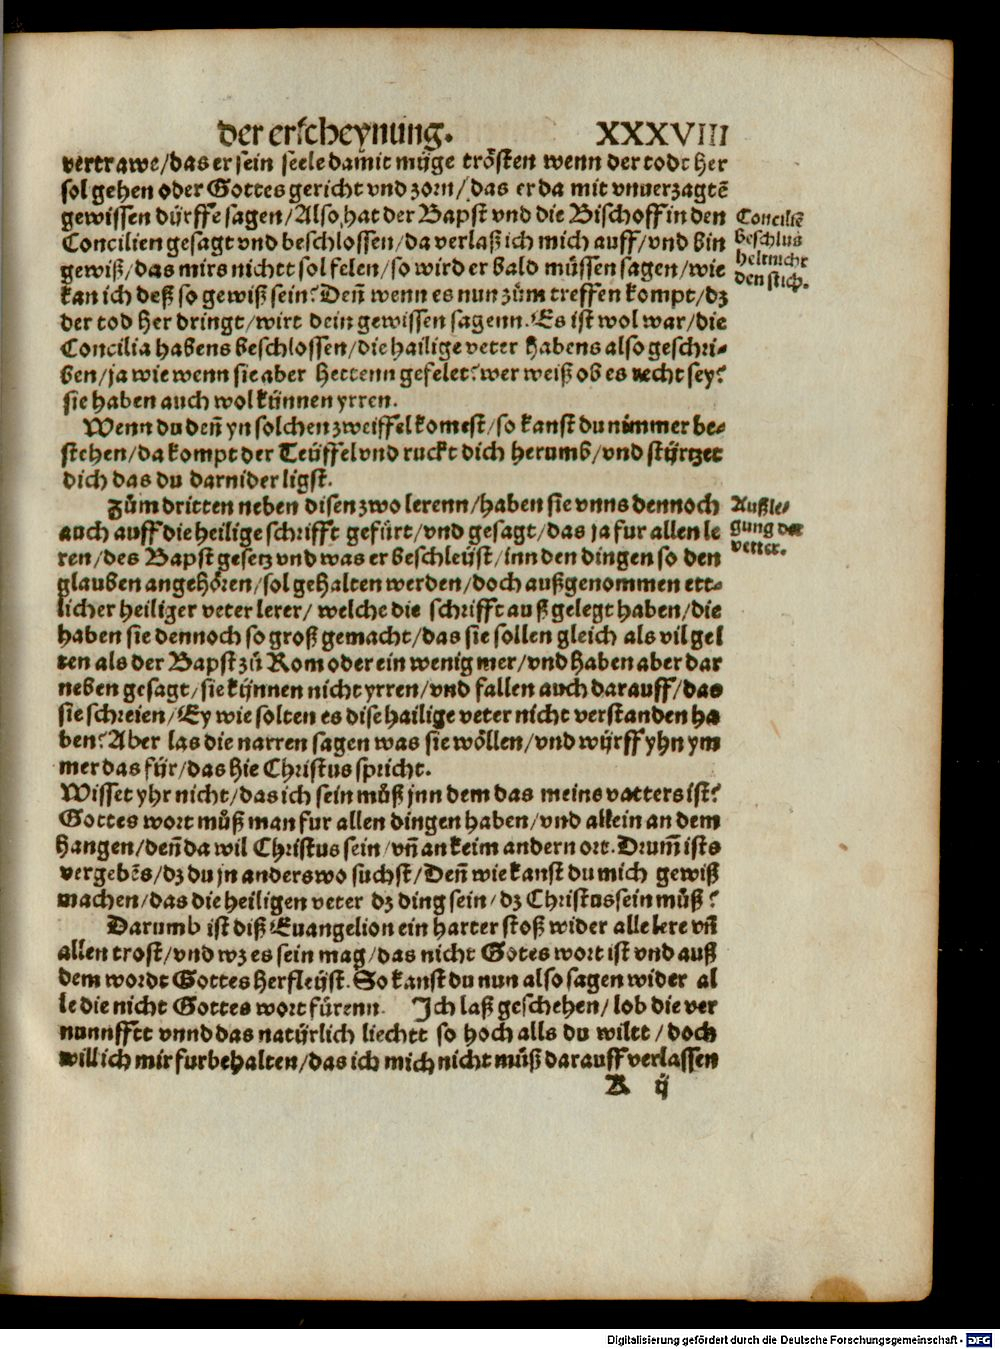 der erscheynung. XXXVIII
vertrawe/das er sein seele damit müge trösten wenn der todt her
sol gehen oder Gottes gericht vnd zorn/das er da mit vnuerzagtẽ
gewissen dürffe sagen/Also hat der Bapst vnd die Bischoff in den
Concilien gesagt vnd beschlossen/da verlaß ich mich auff/vnd bin
gewiß/das mirs nichtt sol felen/so wird er bald müssen sagen/wie
kan ich deß so gewiß sein? Deñ wenn es nun zům treffen kompt/dz
der tod her dringt/wirt dein gewissen sagenn. Es ist wol war/die
Concilia habens beschlossen/die hailige veter habens also geschri-
ben/ja wie wenn sie aber hettenn gefelet? wer weiß ob es recht sey?
sie haben auch wol künnen yrren.
Wenn du deñ yn solchen zweiffel komest/so kanst du nimmer be-
stehen/da kompt der Teüffel vnd ruckt dich herumb/vnd stürtzet
dich das du darnider ligst.
Zům dritten neben disen zwo lerenn/haben sie vnns dennoch
auch auff die heilige schrifft gefürt/vnd gesagt/das ja fur allen le
ren/des Bapst gesetz vnd was er beschleüst/inn den dingen so den
glauben angehören/sol gehalten werden/doch außgenommen ett-
licher heiliger veter lerer/ welche die schrifft außgelegt haben/die
haben sie dennoch so groß gemacht/das sie sollen gleich als vil gel
ten als der Bapst zů Rom oder ein wenig mer/vnd haben aber dar
neben gesagt/sie künnen nicht yrren/vnd fallen auch darauff/das
sie schreien/Ey wie solten es dise hailige veter nicht verstanden ha
ben? Aber las die narren sagen was sie wöllen/vnd würff yhn ym
mer das für/das hie Christus spricht.
Wisset yhr nicht/das ich sein můß jnn dem das meins vatters ist?
Gottes wort můß man fur allen dingen haben/vnd allein an dem
hangen/deñ da wil Christus sein/vñ an keim andern ort. Drum̃ ists
vergebẽs/dz du jn anderswo suchst/Deñ wie kanst du mich gewiß
machen/das die heiligen veter dz ding sein/dz Christus sein můß?
Darumb ist diß Euangelion ein harter stoß wider alle lere vñ
allen trost/vnd wz es sein mag/das nicht Gotes wort ist vnd auß
dem wordt Gottes herfleüst. So kanst du nun also sagen wider al
le die nicht Gottes wort fürenn. Ich laß geschehen/lob die ver
nunnfftt vnnd das natürlich liechtt so hoch alls du wiltt/doch
will ich mir furbehalten/das ich mich nicht můß darauff verlassen
K ij
Conciliẽ
beschlus
helt nicht
den stich.
Außle-
gung der
vetter.
Digitalisierung gefördert durch die Deutsche Forschungsgemeinschaft - DFG